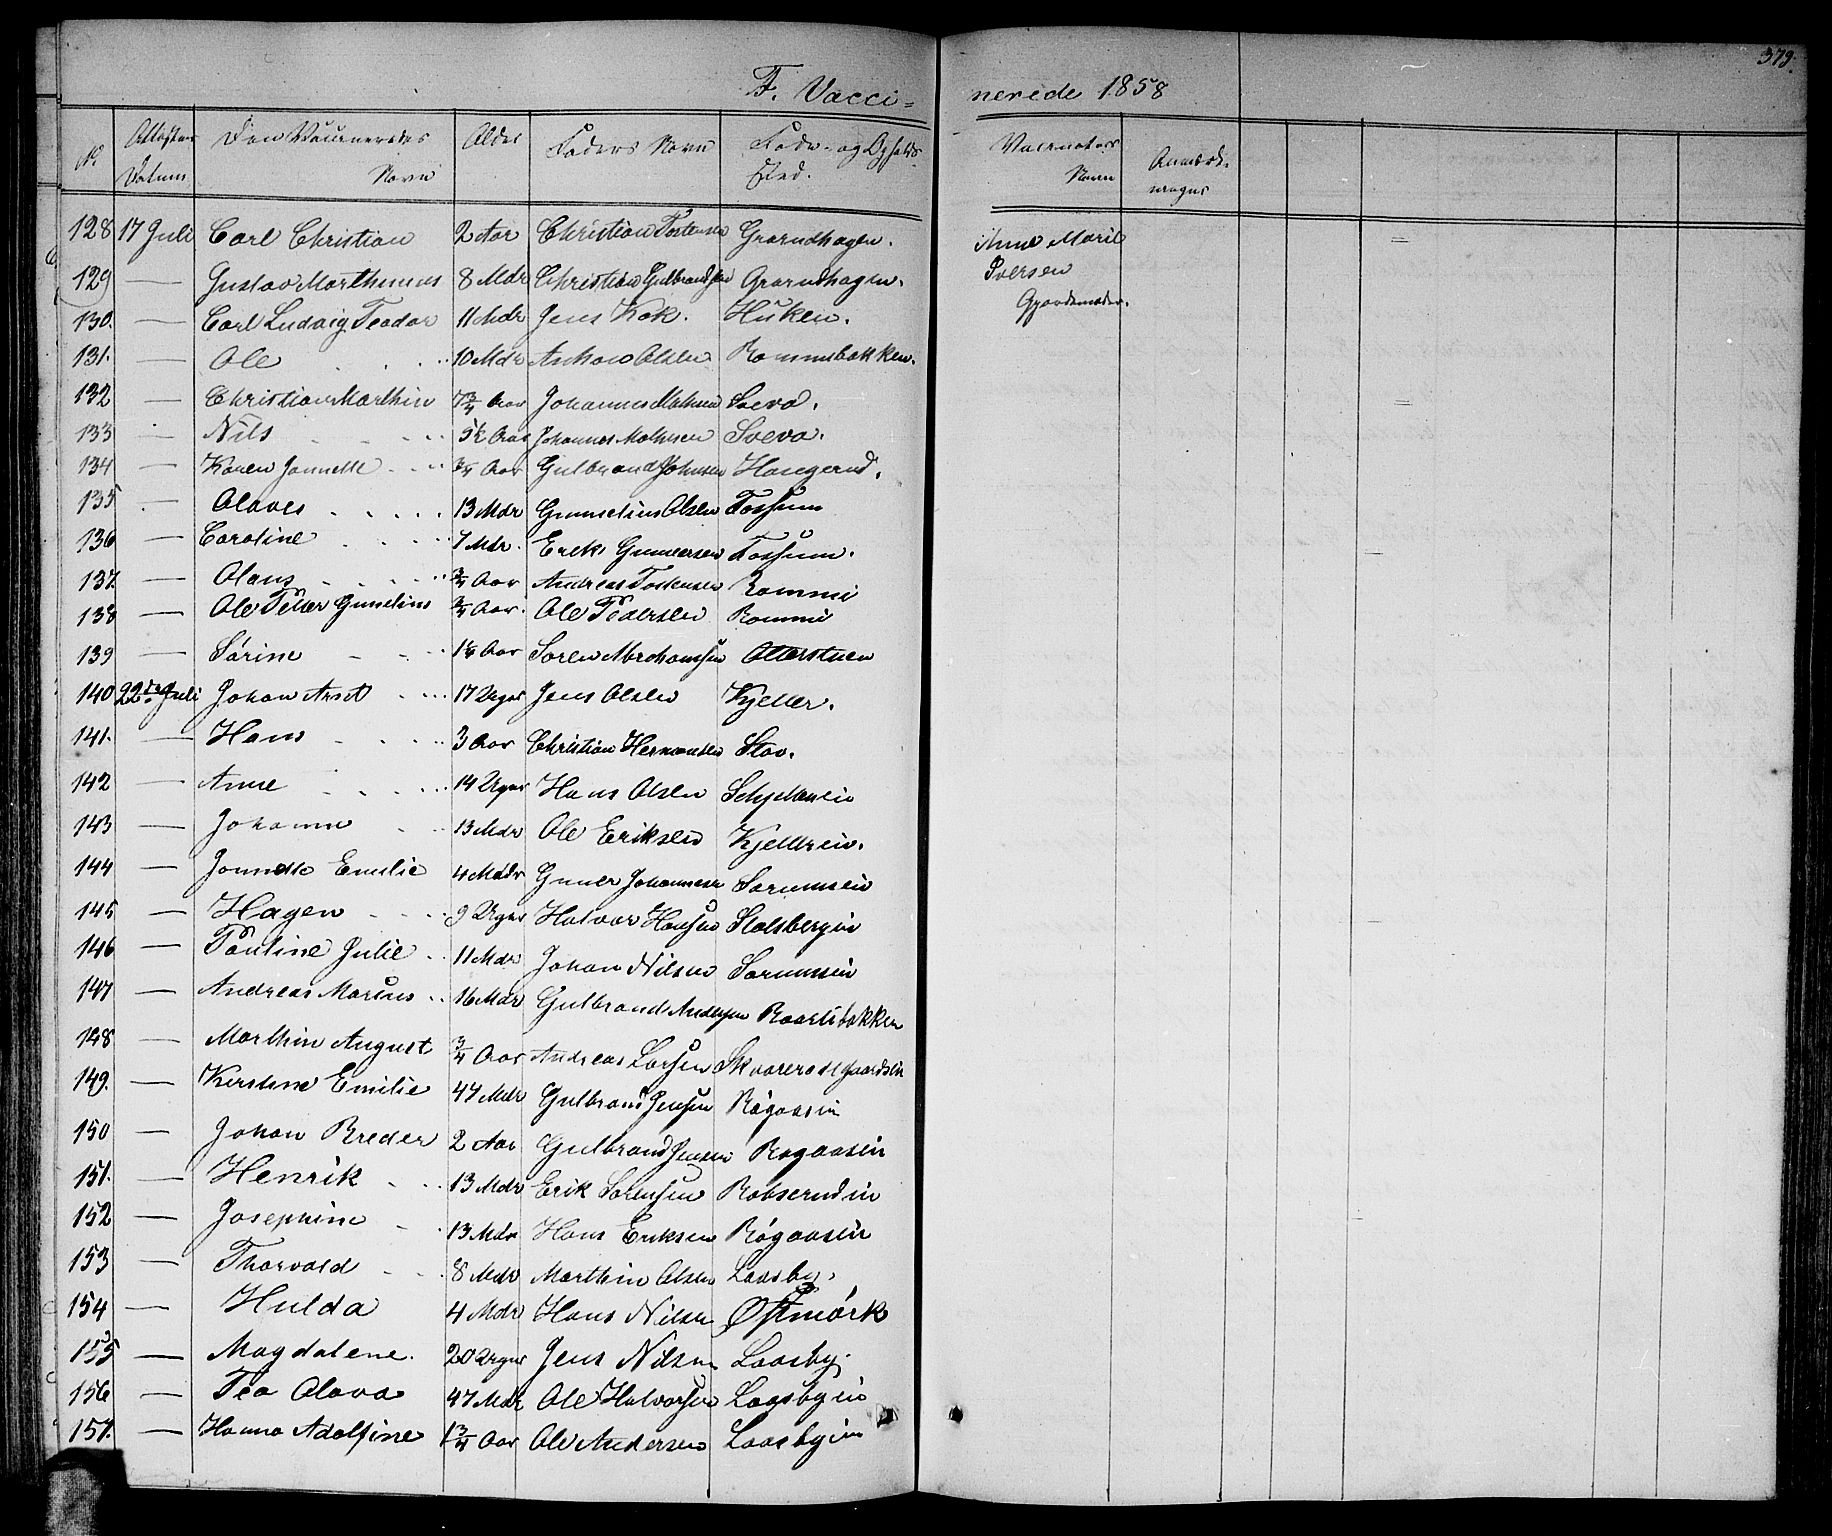 379.
F. Vaccinerede 1858
No Attestens Datum Den Vaccineredes Navn Alder Faders Navn Føde- og Opholds-Sted. Vaccinators Navn Anmærkninger
128 17 Juli Carl Christian 2 Aar Christian Tostensen Grorudhagen. Anne Marie
129 — Gustav Marthinius 8 Mdr Christian Gulbrandsen Grorudhagen. Iversen
130. — Carl Ludvig Teodor 11 Mdr Jens Kok. Huken. Gjordemoder.
131. — Ole 10 Mdr Anthon Olsen Rommebakken.
132 — Christian Marthin 7 3/4 Aar Johannes Mathesen Soevo.
133 — Nils 5 1/2 Aar Johannes Mathesen Soevo.
134 — Karen Jannette 3/4 Aar Gulbrand Johnsen Haugerud.
135 — Olaves 13 Mdr Gunnelius Olsen Fossum
136 — Caroline 7 Mdr. Erik Gunnersen Fossum.
137. — Olaus 3/4 Aar Andreas Tostensen Romme
138 — Ole Peter Gunelius 3/4 Aar. Ole Pedersen Romme
139 — Sørine 1 1/4 Aar Soren Abrahamsen Atterstuen
140 22de Juli Johan Axset 17 Uger Jens Olsen Kjeller.
141. — Hans 3 Aar Christian Hermansen Stov.
142 — Anne 14 Uger Hans Olsen
143 — Johanne 13 Mdr Ole Eriksen Kjellerein.
144 — Jannette Emilie 4 Mddr Guner Johannesen Sorumsein
145 — Hagen 9 Uger Halvor Hansen Stolsbergin
146 — Pauline Julie 11 Mdr Johan Nilsen Sorumsein
147 — Andreas Marius 16 Mdr Gulbrand Andersen Baarlibakken
148 — Marthin August 3/4 Aar Andreas Larsen
149. — Kirstine Emilie 47 Mdr Gulbrand Jensen Røgaasin
150 — Johan Breder 2 Aar Gulbrand Jensen Røgaasein
151. — Henrik 13 Mdr Erik Sorensen Robserudein
152 — Josephine 13 Mdr Hans Eriksen Røgaasein
153 — Thorvald 8 Mdr Marthin Olsen Laasby.
154 — Hulda 4 Mdr Hans Nilsen Østmørk
155 — Magdalene. 20 Uger Jens Nilsen Laasby.
156 — Tea Olava 47 Mdr Ole Halvorsen Laasbyein
157. — Hanna Adolfine 1 3/4 Aar Ole Andersen Laasbyein